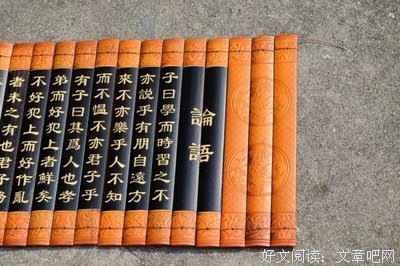 論語
子曰學而時習之不
亦説乎有朋自遠方
來不亦樂乎人不知
而不愠不亦君子乎
有子曰其爲人也孝
弟而好犯上者鮮矣
不好犯上而好作亂
者未之有也君子務
好文阅读：文章吧网